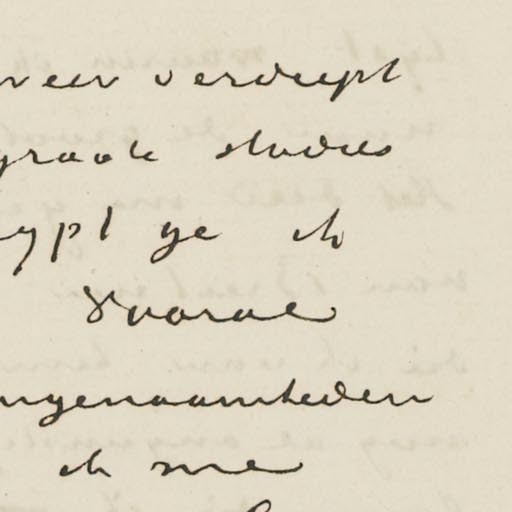 meer verdiept
graote studies
ge ik
Vooral
ngenaamheden
ik me